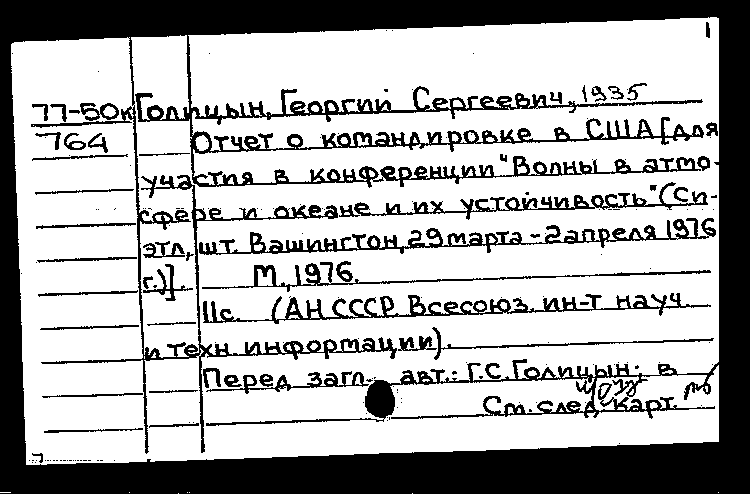 1
77-50к Голицын, Георгий Сергеевич, 1935
764 Отчет о командировке в США [для
участия в конференции "Волны в атмо-
сфере и океане и их устойчивость" (Си-
этл, шт. Вашингтон, 29 марта - 2 апреля 1976
г.)]. М., 1976.
11с. (АН СССР. Всесоюз. ин-т науч.
и техн. информации).
Перед загл. авт.: Г.С. Голицын; в
См. след. карт.